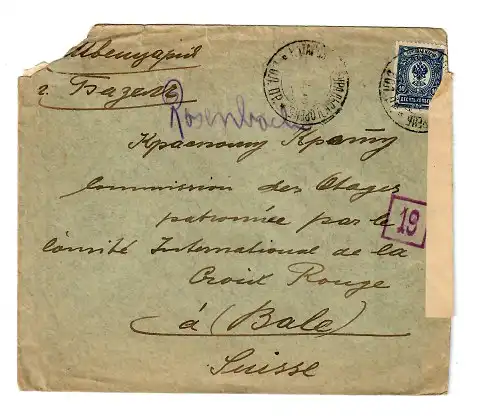 Швейцария
г. Базель
Rosenbach
Красному Кресту
Commission des Otages
patronnée par le
Comité International de la
Croix Rouge
á (Bale)
Suisse
19